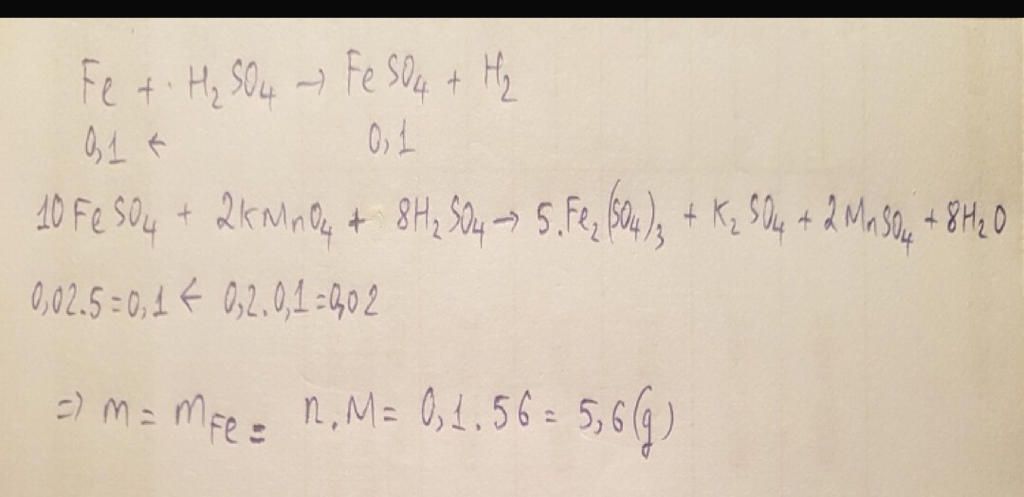 Fe + H₂SO₄ → FeSO₄ + H₂
0,1 ← 0,1
10FeSO₄ + 2KMnO₄ + 8H₂SO₄ → 5.Fe₂(SO₄)₃ + K₂SO₄ + 2MnSO₄ + 8H₂O
0,02.5=0,1 ← 0,2.0,1=0,02
=) m = mFe = n.M = 0,1.56 = 5,6(g)